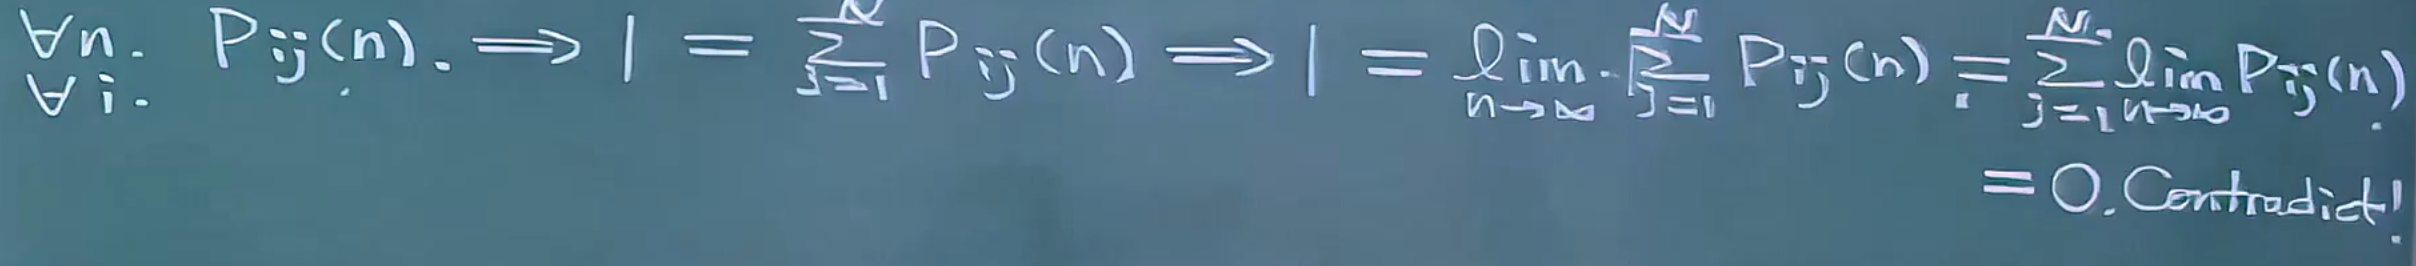 ∀n. P_{ij}(n). ⟹ 1 = \sum_{j=1}^{N} P_{ij}(n) ⟹ 1 = \lim_{n→∞} \sum_{j=1}^{N} P_{ij}(n) = \sum_{j=1}^{N} \lim_{n→∞} P_{ij}(n)
∀i.
= 0. Contradict!